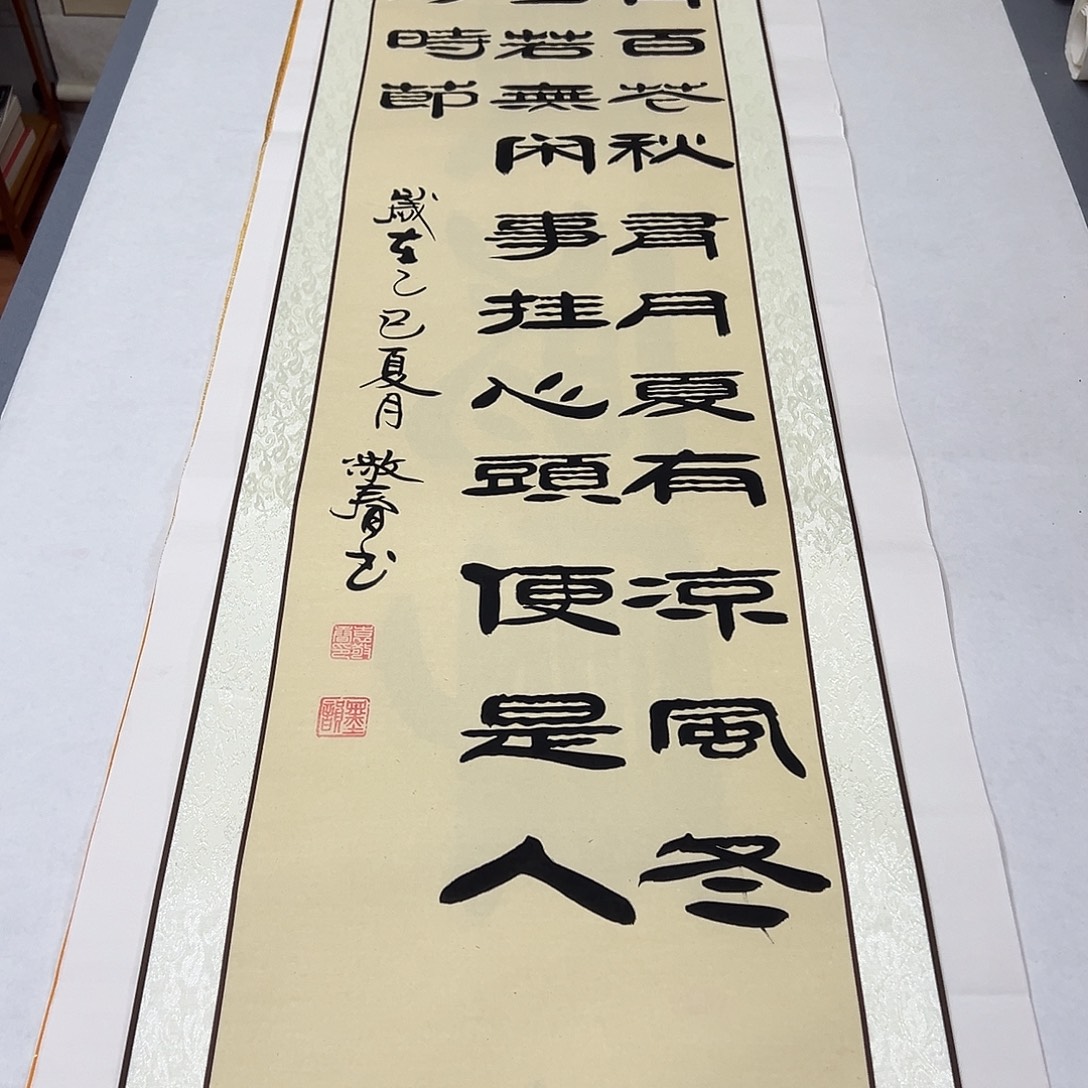 百花秋有月夏有涼風冬
若無闲事挂心頭便是人
時節
歲在乙巳夏月 敬春书
墨韻